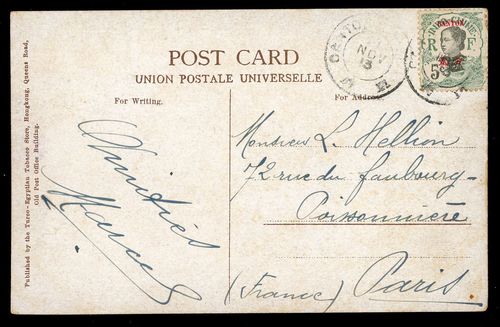 POST CARD
UNION POSTALE UNIVERSELLE
For Writing.
For Address.
CANTON
NOV
13
INDO-CHINE
CANTON
R F
5
Amitiés
Marcel
Monsieur L. Hellion
72 rue du faubourg-
Poissonnière
Paris.
(France)
Published by the Turco-Egyptian Tobacco Store, Hongkong, Queens Road,
Old Post Office Building.